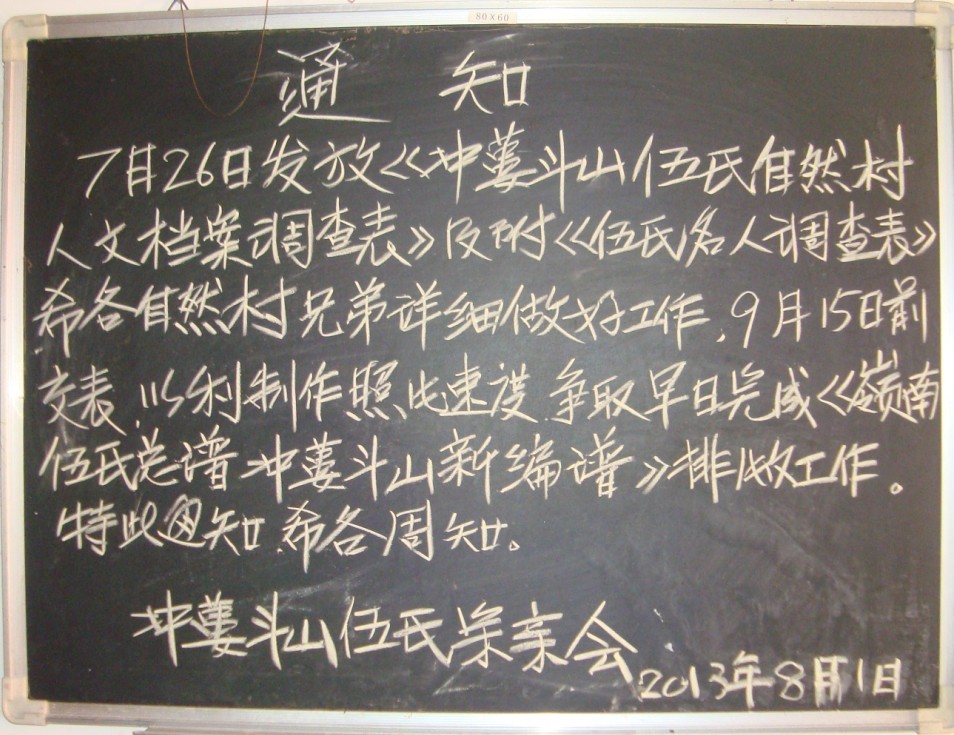 80×60
通 知
7月26日发放《冲蒌斗山伍氏自然村
人文档案调查表》及附《伍氏名人调查表》
希各自然村兄弟详细做好工作,9月15日前
交表,以利制作照此速度争取早日完成《嶺南
伍氏总谱冲蒌斗山新编谱》排版工作。
特此通知,希各周知。
冲蒌斗山伍氏宗亲会
2013年8月1日